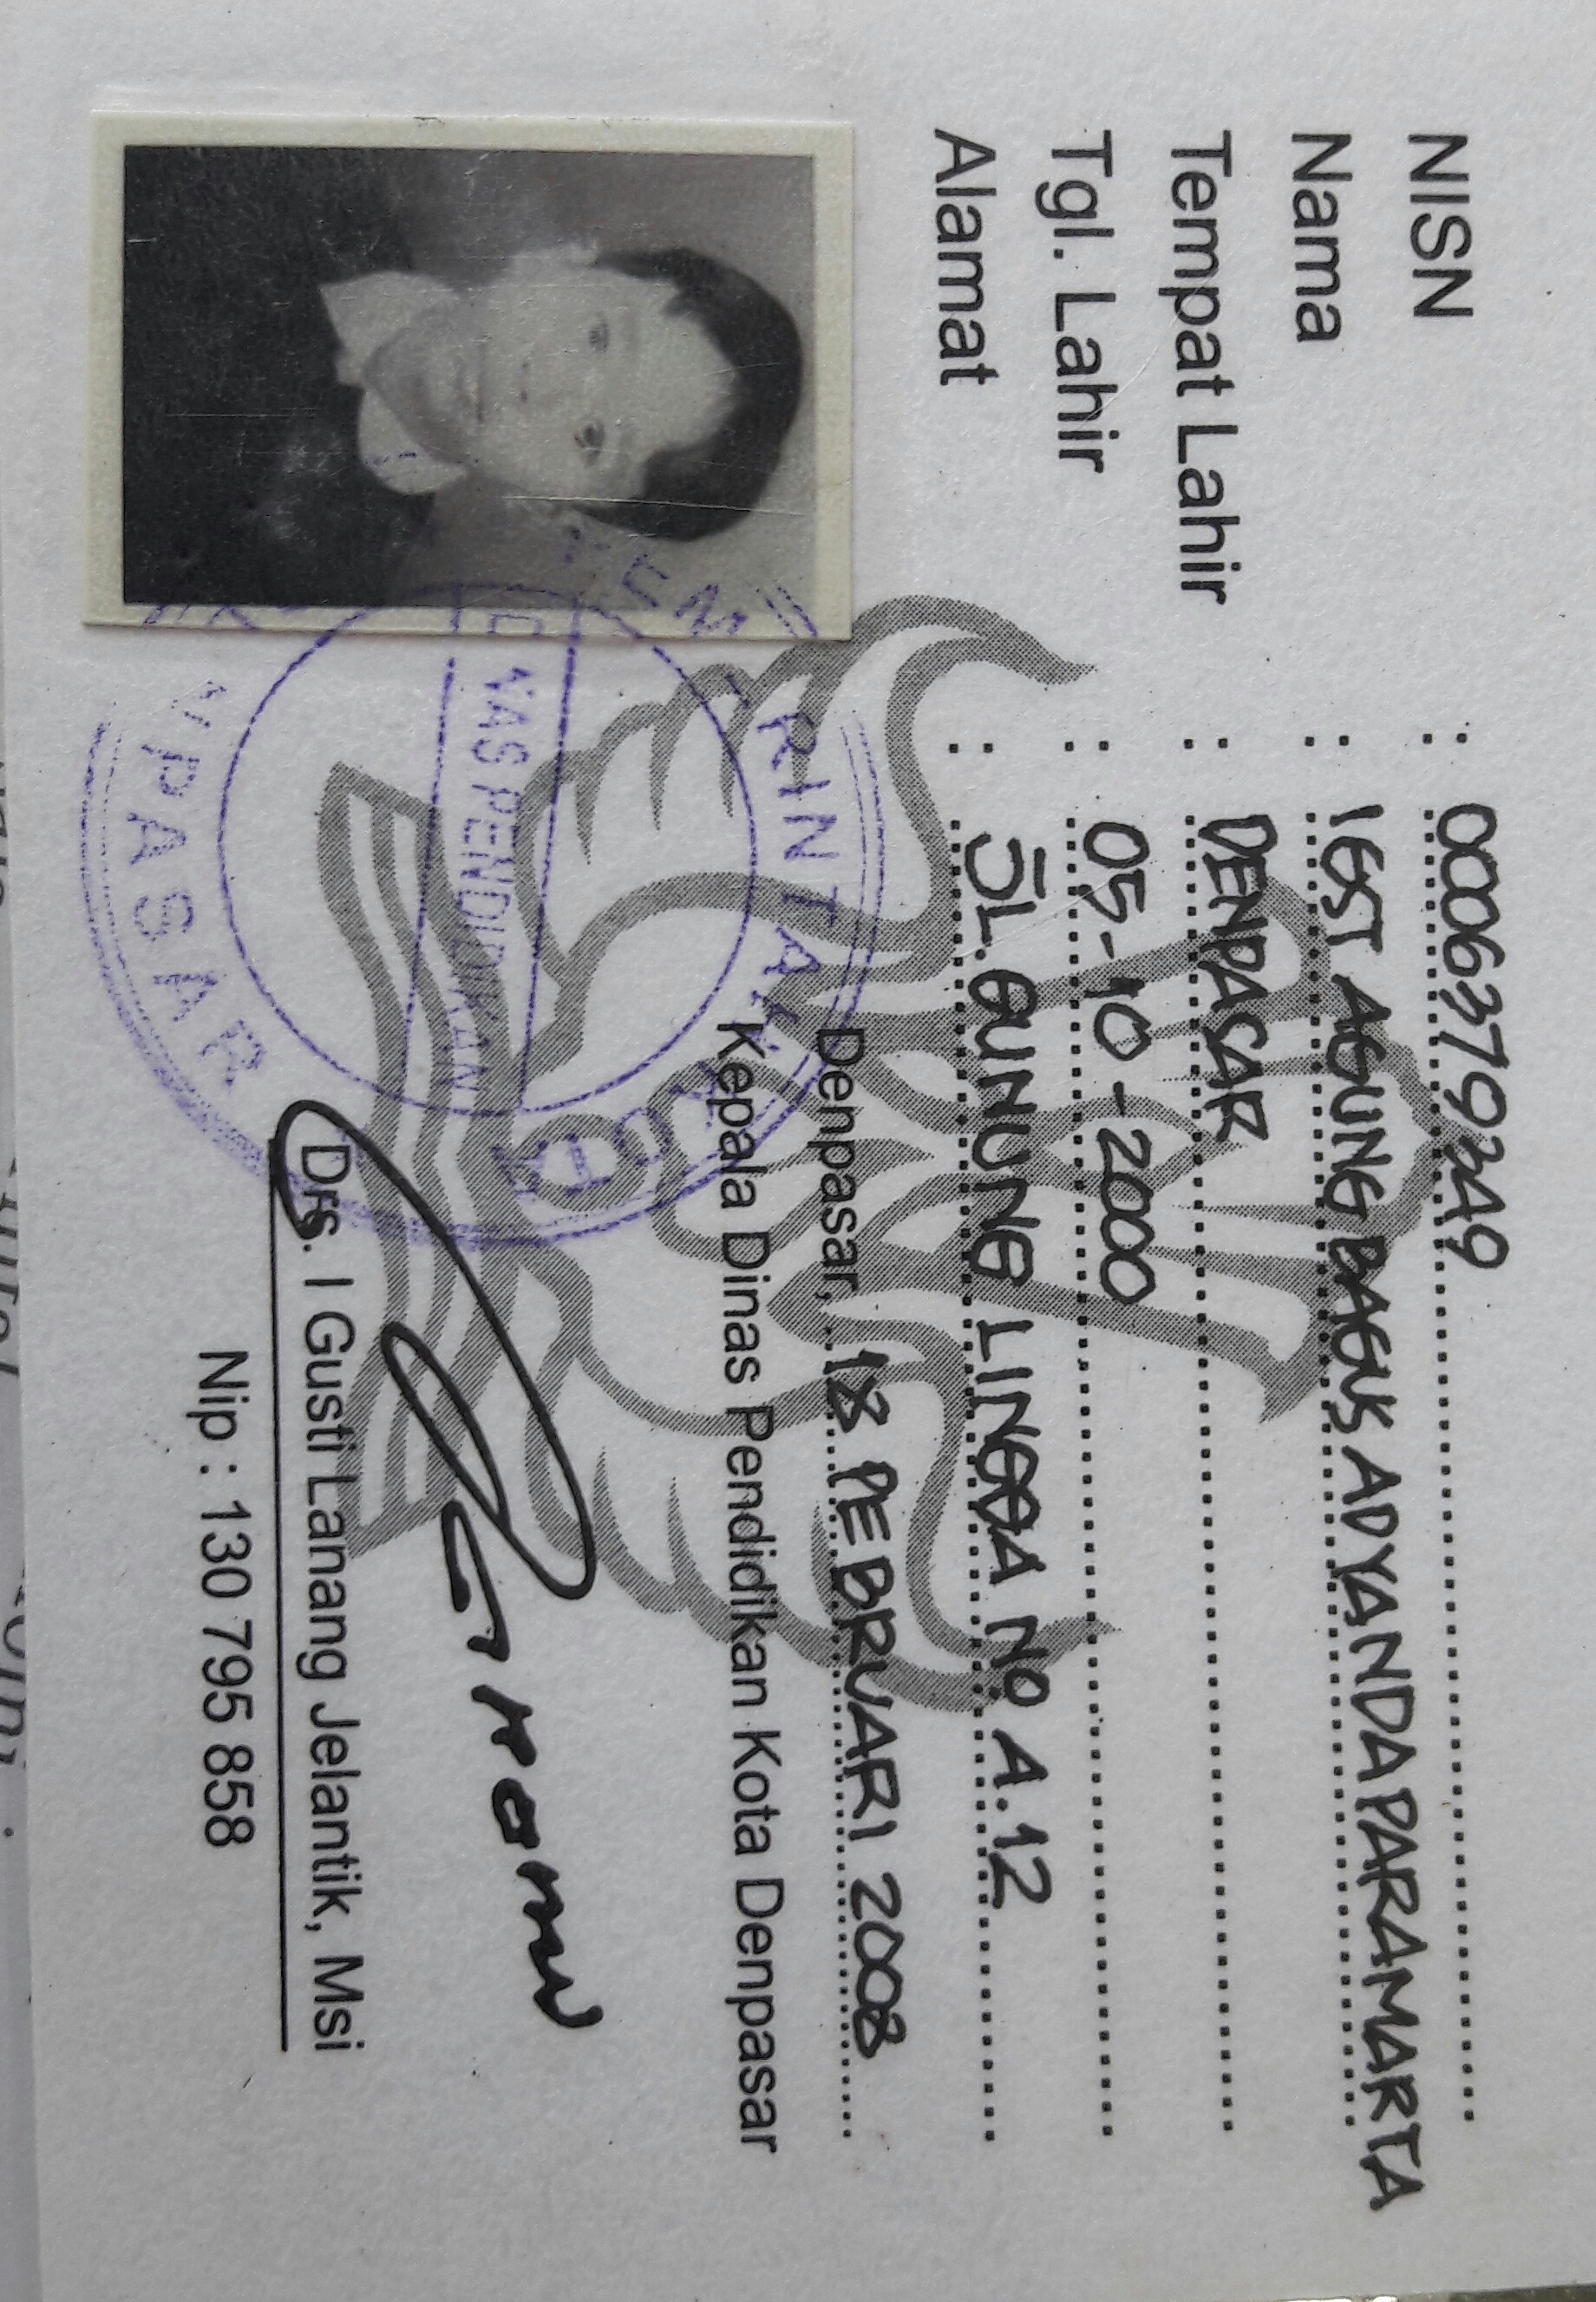 NISN : 0006379249
Nama : I GST AGUNG BAGUS ADYANDA PARAMARTA
Tempat Lahir : DENPASAR
Tgl. Lahir : 05-10-2000
Alamat : JL. GUNUNG LINGGA NO A.12
Denpasar, 18 PEBRUARI 2008
Kepala Dinas Pendidikan Kota Denpasar
Drs. I Gusti Lanang Jelantik, Msi
Nip : 130 795 858
DINAS PENDIDIKAN